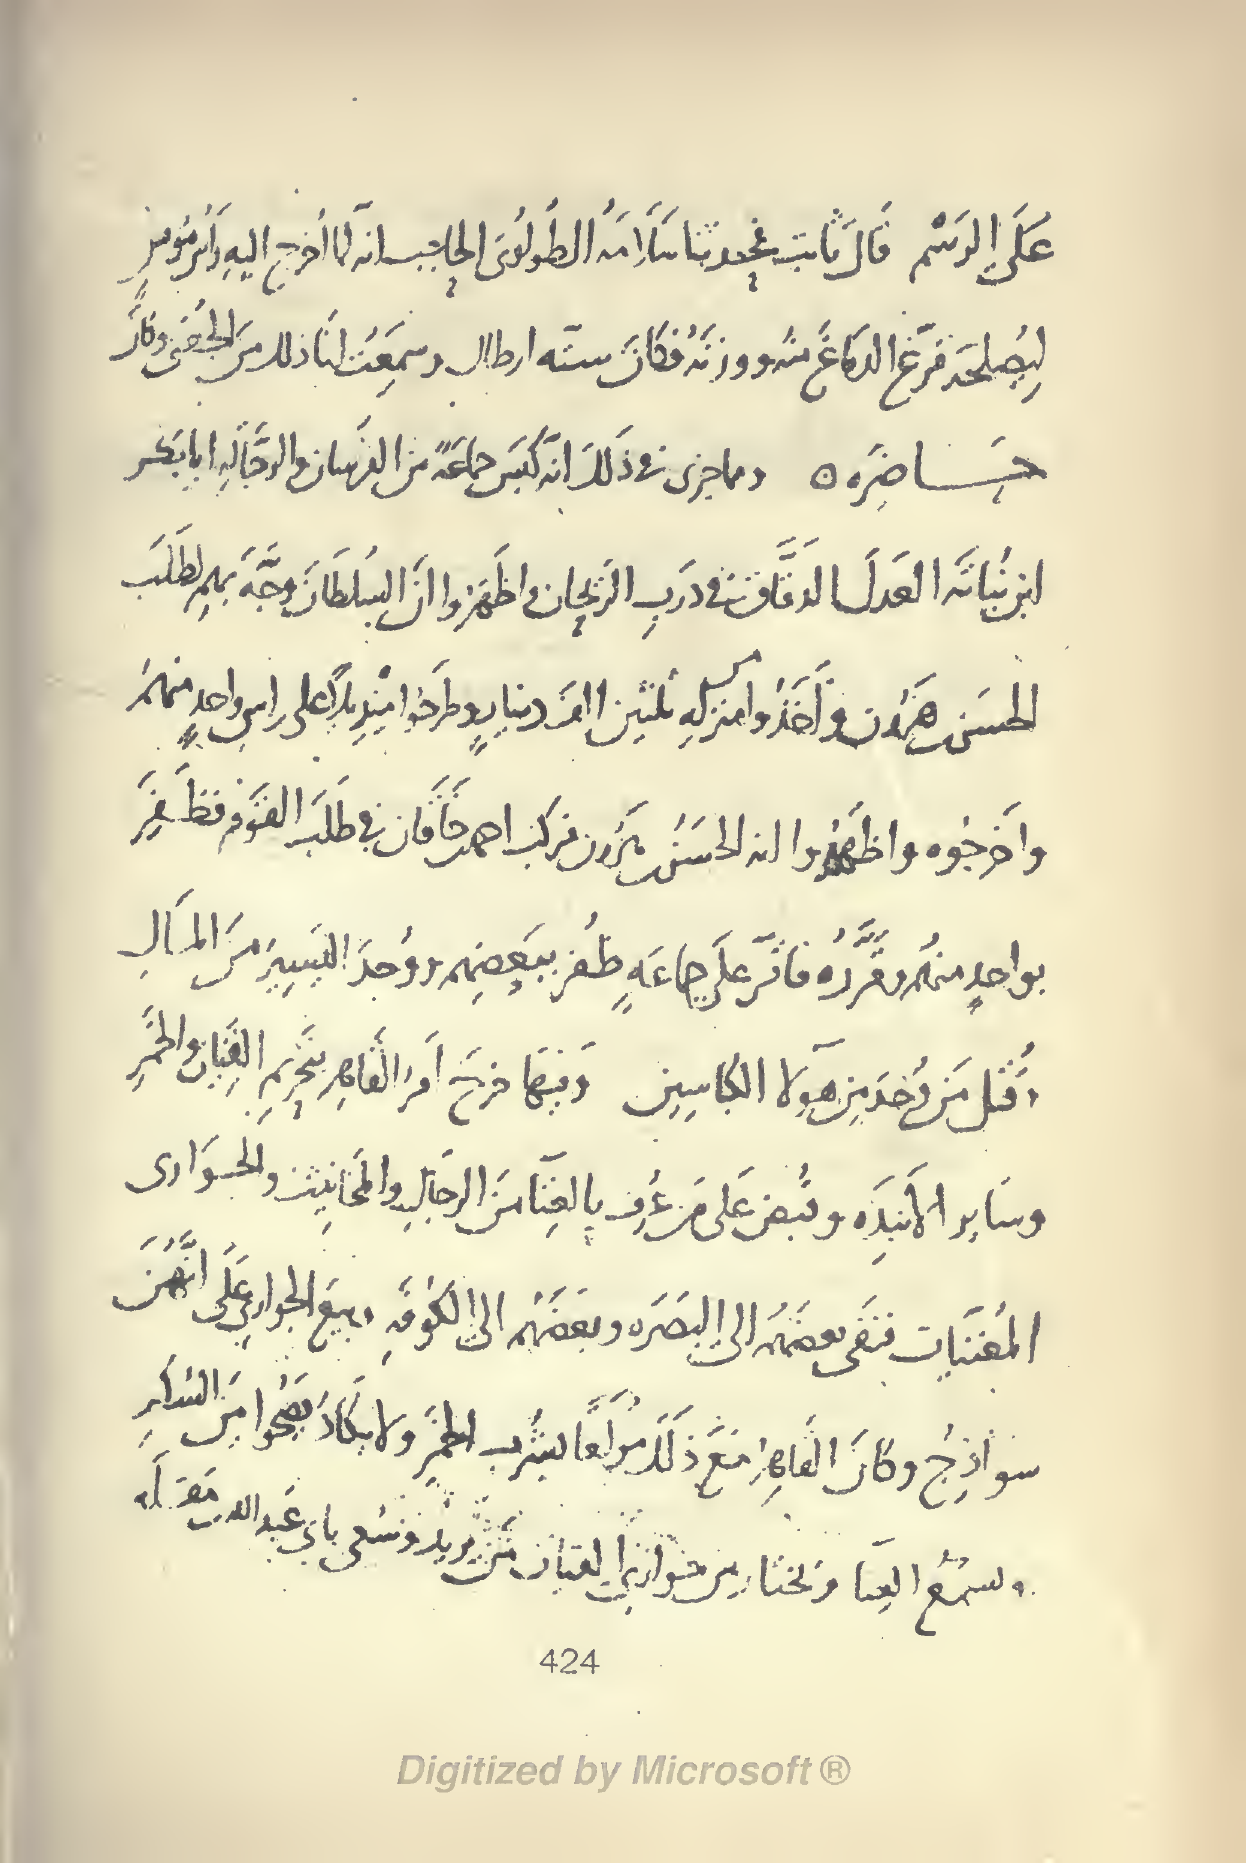 عَلَى الرَسْم قَالَ ثَابت فحدثنا سَلَامَه الطُولُوى الحاجب انه لما اُخرج اليهِ رَاسُ مُونسٍ
ليُصلحَه فَرَّغَ الدمَاغَ منه ووزنَهُ فكانَ ستَه ارطال وسمِعَتُ انَا ذلك منَ الجُفنى وكانَ
حَــاضِرَه ٥ ومما جرى فى ذَلكَ انَّه كَبَسَ جماعَةً منَ الفرسان والرجَّالهِ ابا بَكر
ابنِ نُبَاتَه العَدلَ الدَقَّاق فى دَربِ الرَيحان واظهَرُوا انَّ السُلطَانَ وجَّهَ بهِم لطَلَبَ
الحسَن بن هَرُون وَاَخَذُوا من منزلهِ ثلثين الفَ دينارٍ وطَرحُوا مِنْدِيلاً على راس واحدٍ منهمُ
واَخرجُوه واظهَرُوا انه الحسَنُ بن هَرُون فركبَ احمد بن خَاقَان فى طَلَبَ القَوم فظَفِرَ
بواحدٍ منهُم وقَرَّرَهُ فاقَرّ علَى جماعَهٍ ظُفر ببَعضِهم ووُجدَ اليَسيرَ منَ المَال
وقُتلَ مَن وُجدَ من هَولا الكَابسِين وَفيهَا خرجَ اَمرُ القَاهِر بتَحرِيم القِيَان والخَمرِ
وسَاير الاَنبِذَه وقُبضَ عَلى مَن عُرِف بالغِنَآ منَ الرجَالِ والمخَانِيث والجَوَارى
المُغنيَات فنَفى بعضَهُم الى البَصَره وبعَضَهُم الى الكُوفَهِ وبيعَ الجوَارى عَلَى انَّهُنَ
سواذِجُ وكانَ القَاهِرُ مَعَ ذَلكَ مُولَعًا بشُربِ الخمرِ ولا يكادُ يَصحُوا منَ السُكرِ
ويسمَعُ الغِنا ويختارُ من جوَارى القيَان مَن يُريد وسُعى بابى عَبد الله بن مقلَه
424
Digitized by Microsoft ®